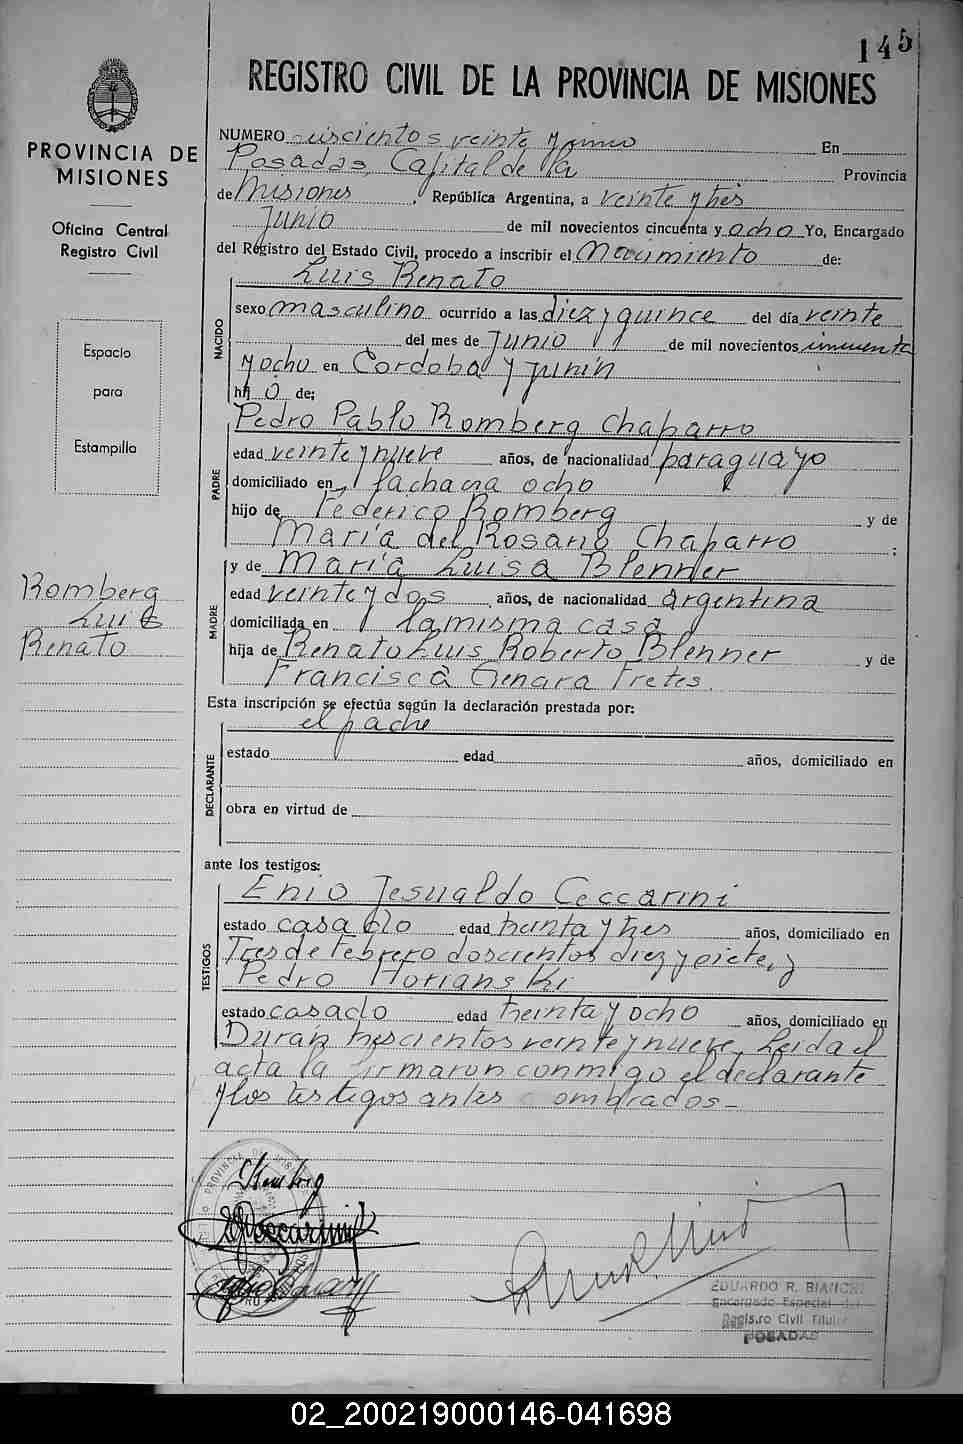 145
REGISTRO CIVIL DE LA PROVINCIA DE MISIONES
PROVINCIA DE
MISIONES
Oficina Central
Registro Civil
Espacio
para
Estampilla
Romberg
Luis
Renato
NUMERO seiscientos veinte y uno En
Posadas, Capital de la Provincia
de Misiones, República Argentina, a veinte y tres
Junio de mil novecientos cincuenta y ocho Yo, Encargado
del Registro del Estado Civil, procedo a inscribir el Nacimiento de:
Luis Renato
NACIDO
sexo masculino ocurrido a las diez y quince del día veinte
del mes de Junio de mil novecientos cincuenta
y ocho en Córdoba y Junín
hij o de;
Pedro Pablo Romberg Chaparro
PADRE
edad veinte y nueve años, de nacionalidad paraguayo
domiciliado en, chacra ocho
hijo de Federico Romberg y de
María del Rosario Chaparro ;
y de María Luisa Blenner
MADRE
edad veinte y dos, años, de nacionalidad argentina
domiciliada en la misma casa
hija de Renato Luis Roberto Blenner y de
Francisca Genara Fretes.
Esta inscripción se efectúa según la declaración prestada por:
el padre
DECLARANTE
estado edad años, domiciliado en
obra en virtud de
ante los testigos:
Enio Jesualdo Ceccarini
TESTIGOS
estado casado edad treinta y tres años, domiciliado en
Tres de Febrero doscientos diez y siete, y
Pedro
estado casado edad treinta y ocho años, domiciliado en
Durán trescientos veinte y nueve. Leida el
acta la firmaron conmigo el declarante
y los testigos antes nombrados_
EDUARDO R. BIANCHI
Encargado Especial del
Registro Civil Titular
POSADAS
02_200219000146-041698